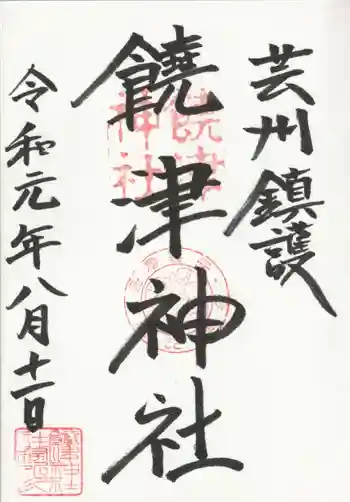 芸州鎮護
饒津神社
令和元年八月十一日
饒津
神社